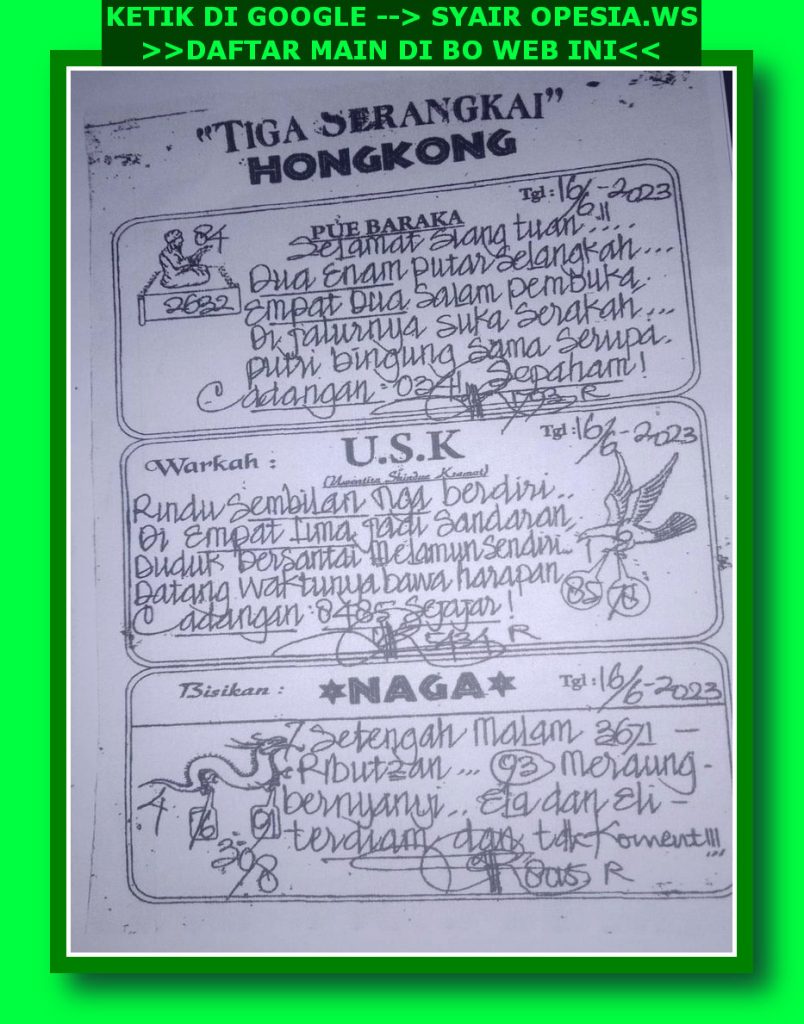 KETIK DI GOOGLE --> SYAIR OPESIA.WS
>>DAFTAR MAIN DI BO WEB INI<<
"TIGA SERANGKAI"
HONGKONG
Tgl : 16/6-2023
PUE BARAKA
84
2632
Selamat siang tuan.....!!
Dua Enam putar selangkah...
Empat Dua salam pembuka.
Di jalurnya suka serakah...
putri bingung sama serupa.
Cadangan : 034 Sepaham!
R
Tgl : 16/6-2023
U.S.K
Warkah :
Rindu Sembilan Tiga berdiri..
Di Empat Lima jadi sandaran
Duduk bersantai melamun sendiri..
Datang waktunya bawa harapan
85
Cadangan : 8485 Sejajar!
5434 R
Bisikan :
*NAGA*
Tgl : 16/6-2023
Setengah Malam 3671 -
Ributzan... 93 Meraung-
bernyanyi.. Ela dan Eli -
terdiam dan tdk Koment!!!
4
6
91
30/8
R